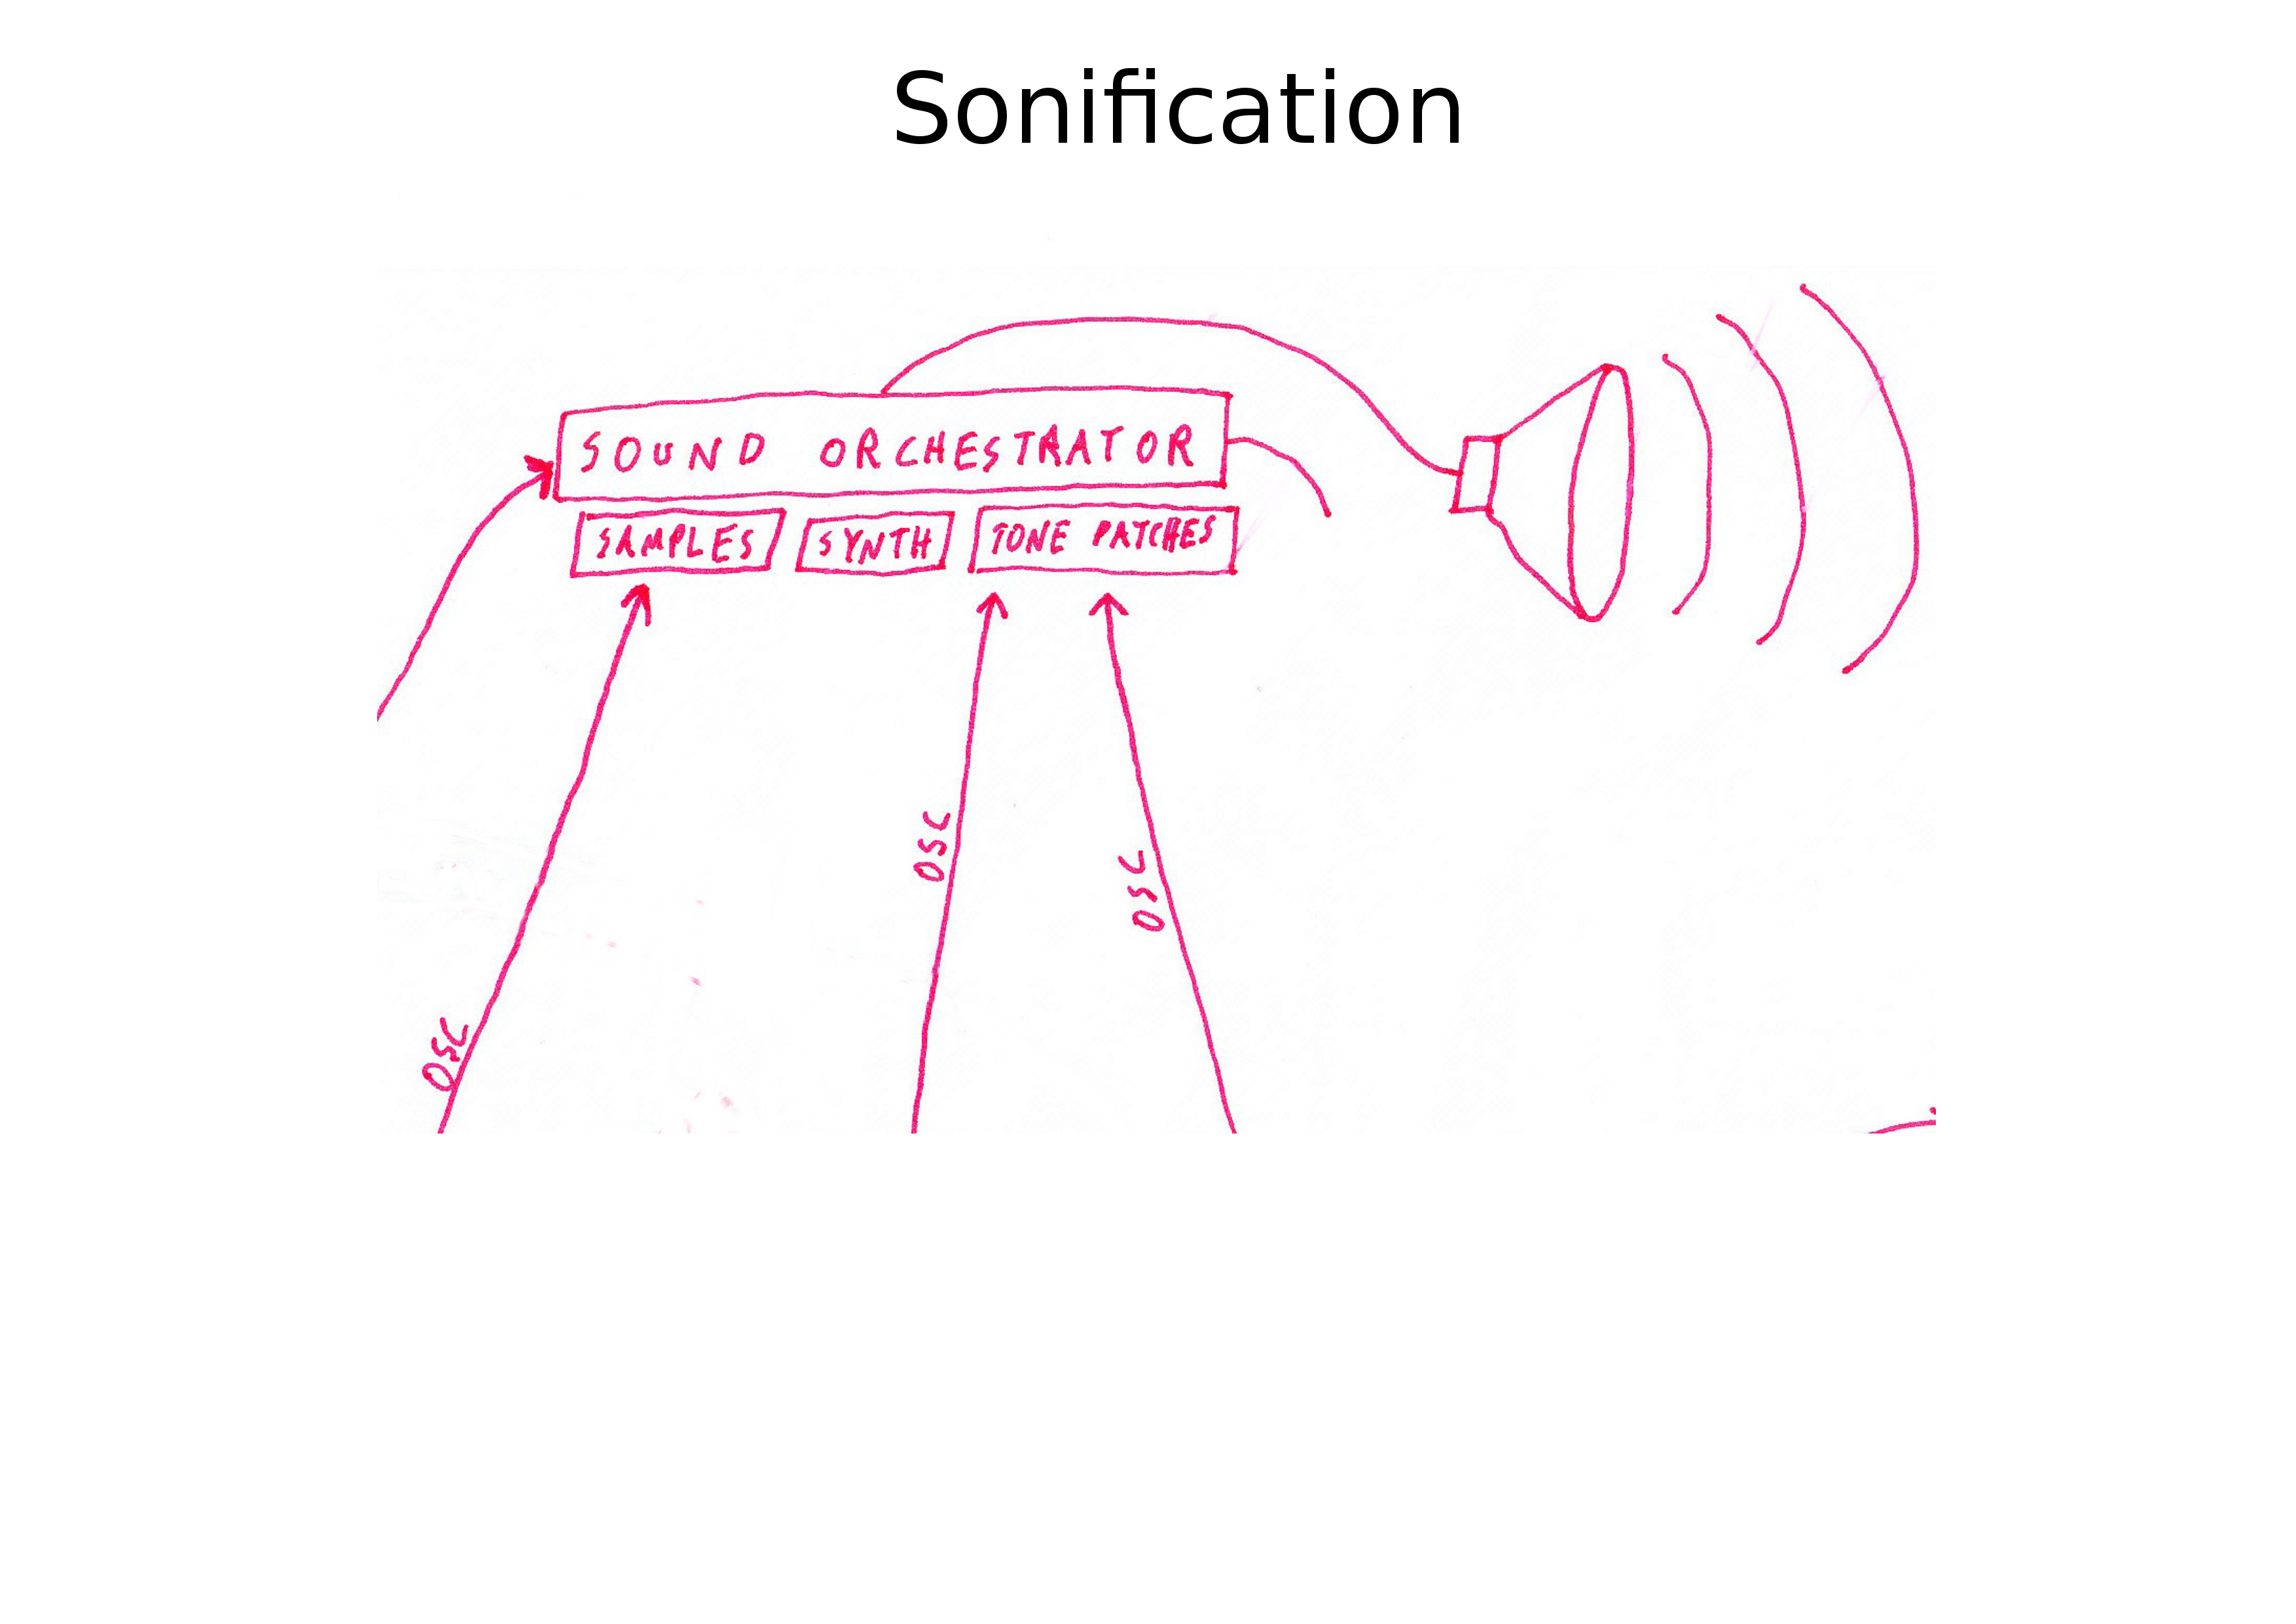 Sonification
SOUND ORCHESTRATOR
SAMPLES
SYNTH
TONE PATCHES
OSC
OSC
OSC